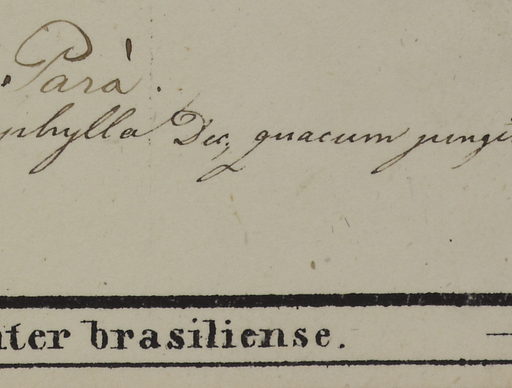 Parà.
phylla Dec, quacum jungi
ter brasiliense.